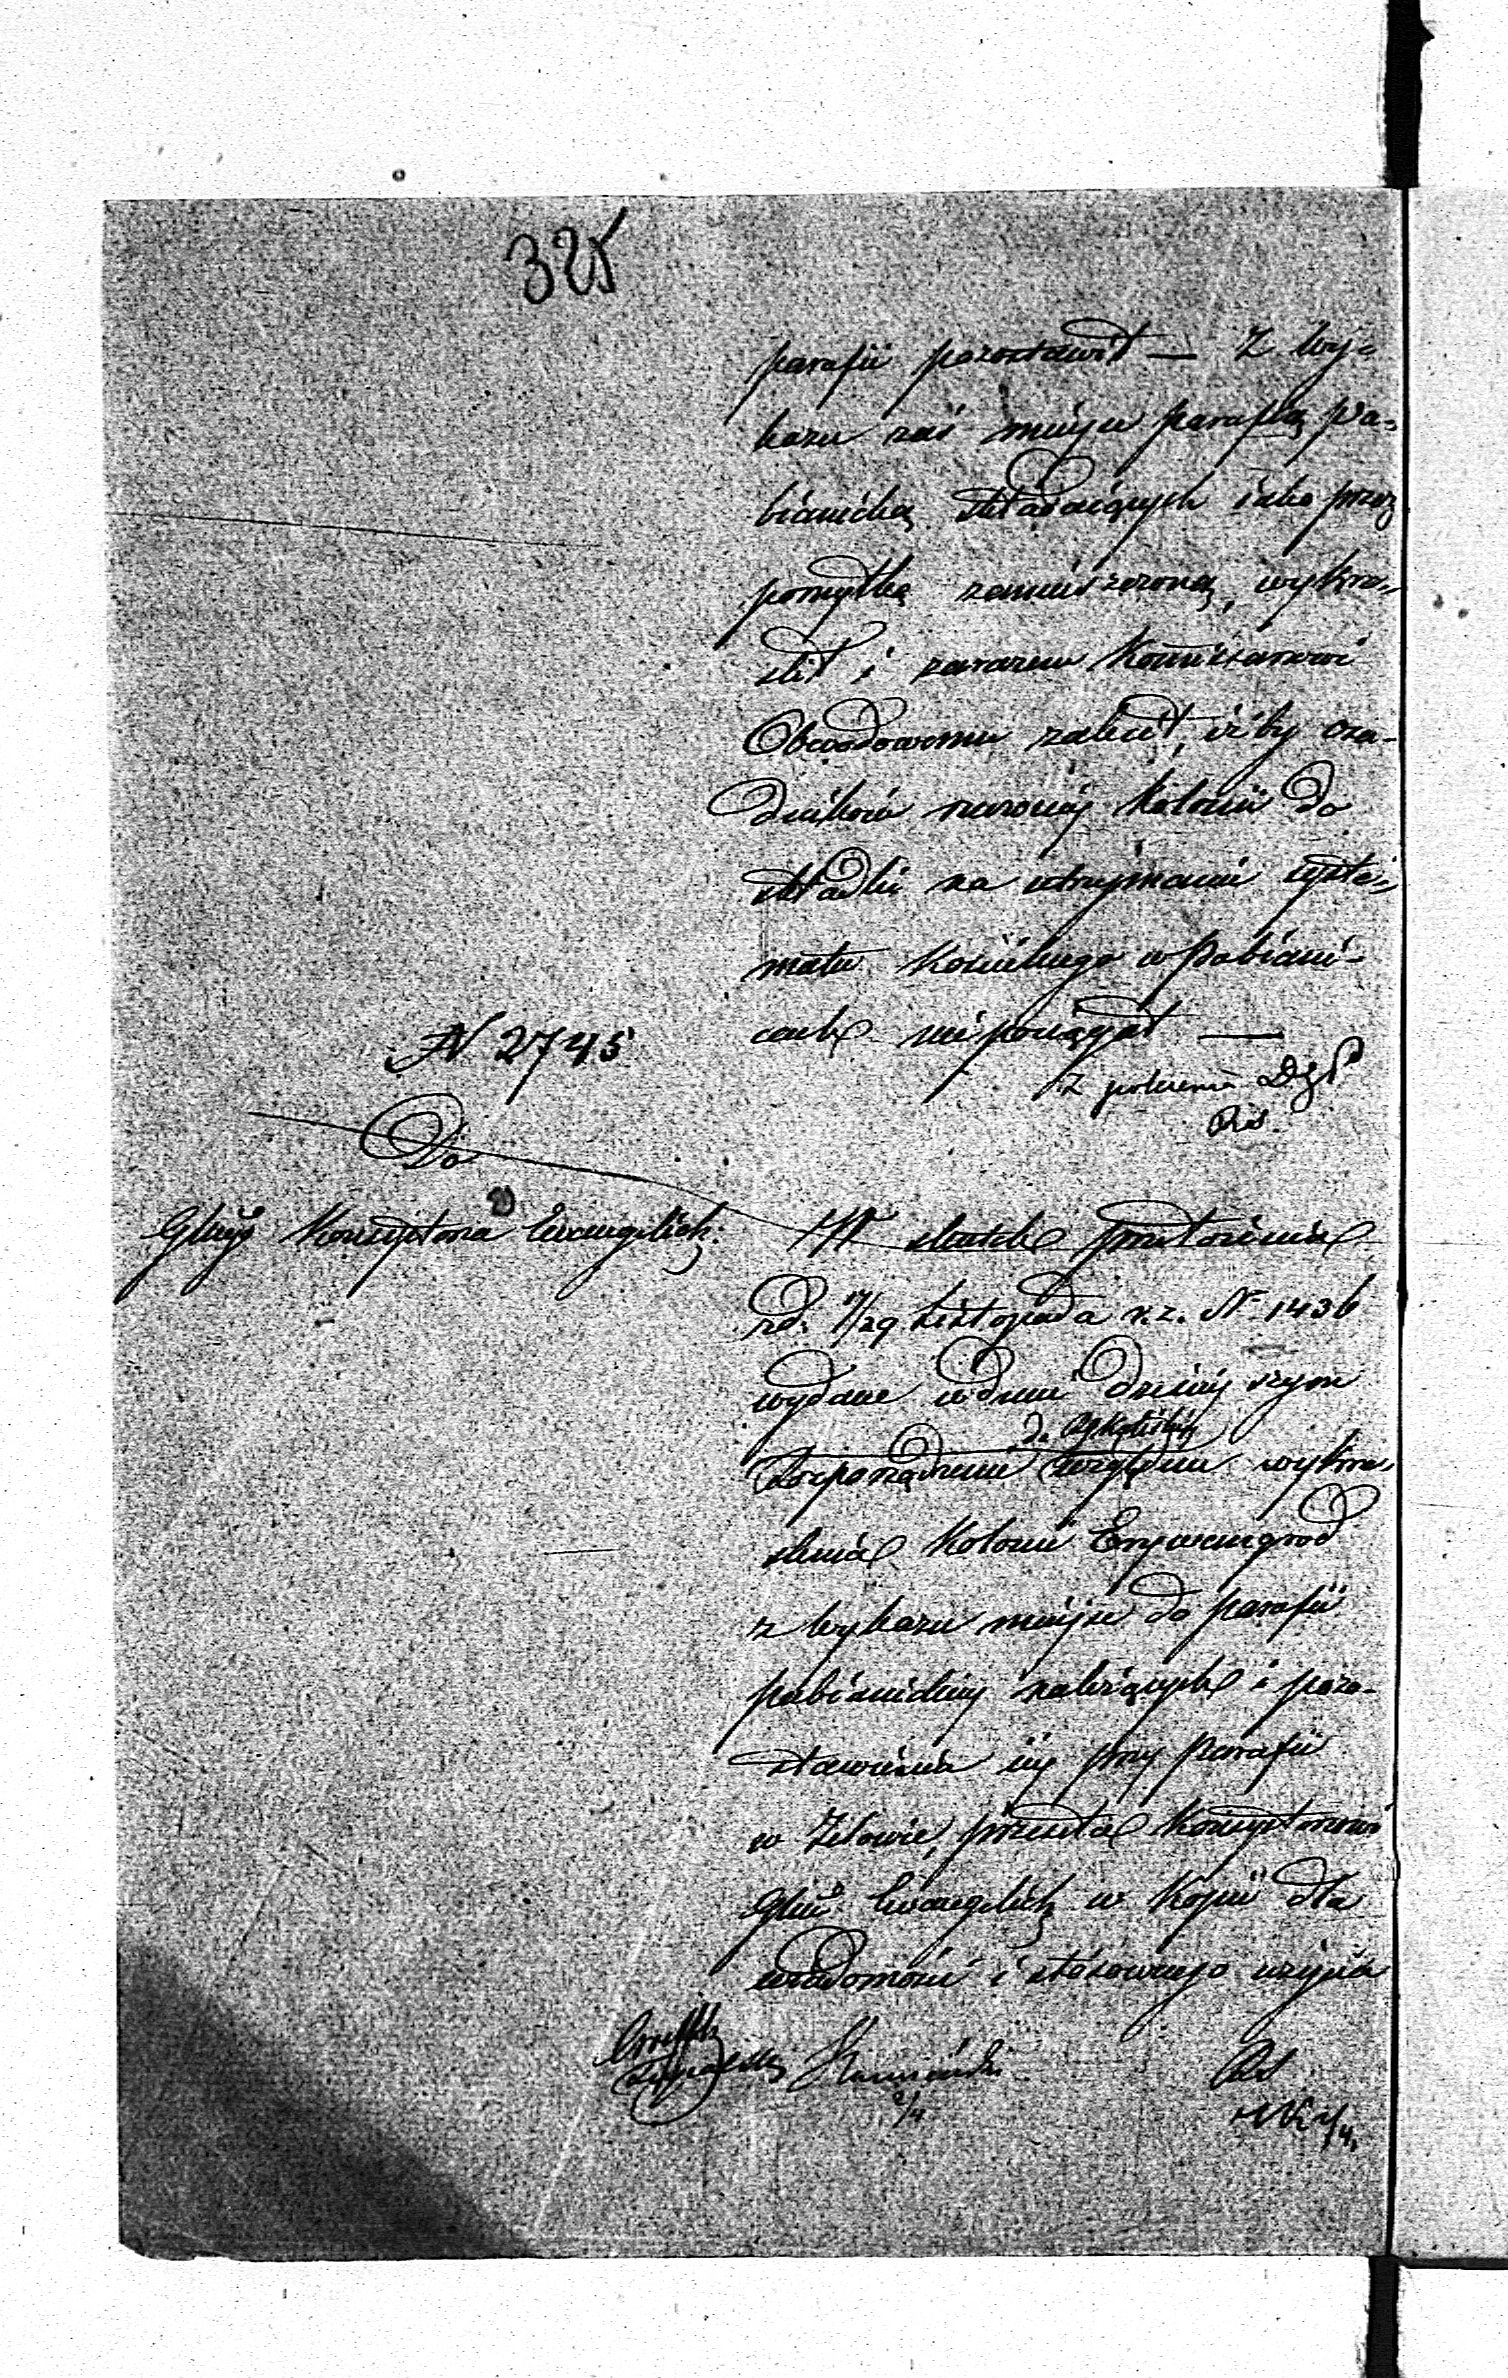 325
parafii pozostawił — Z Wy=
kazu zaś miejsc parafią Pa=
bianicką składaiących iako przez
pomyłkę zamieszczoną, wykre=
slił i zarazem Kommissarzowi
Obwodowemu zalecił, iżby osa=
dników rzeczonej Kolonii do
składki na utrzymanie syste=
matu Kościelnego w Pabiani=
cach nie pociągał —
Z polecenia D G P
N 2745
Do
Gł Konsystorza Ewangelick:
W skutek przełożenia
z d. 17/29 Listopada r. z. N. 1436
wydane w dniu dzisiejszym
do
Rozporządzenie względem wykre=
slenia Kolonii Erywangrod
z Wykazu miejsc do parafii
pabianickiej należących i pozo=
stawienia jej przy Parafii
w Zelowie, przesyła Konsystorzowi
Ewangelick w Kopii dla
wiadomości i stósownego użycia